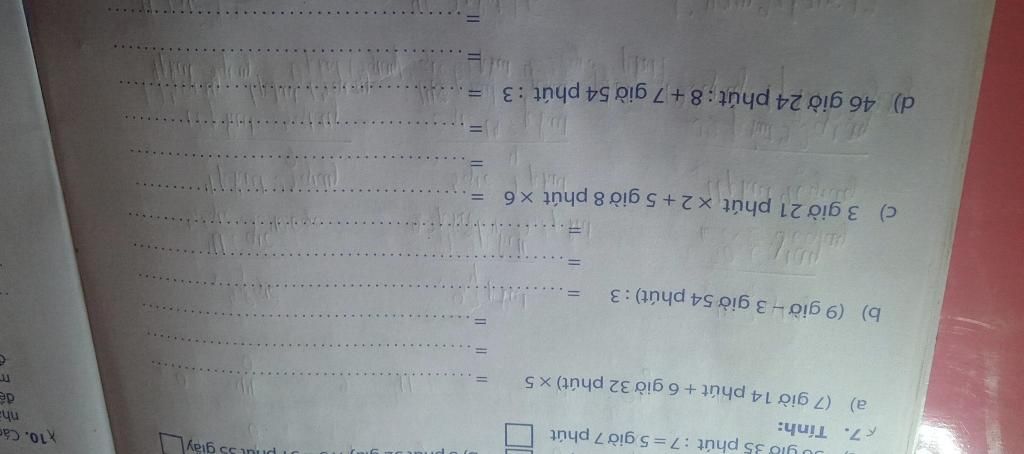 giờ 35 phút : 7 = 5 giờ 7 phút
7. Tính:
a) (7 giờ 14 phút + 6 giờ 32 phút) × 5 =
=
=
b) (9 giờ – 3 giờ 54 phút) : 3 =
=
=
c) 3 giờ 21 phút × 2 + 5 giờ 8 phút × 6 =
=
=
d) 46 giờ 24 phút : 8 + 7 giờ 54 phút : 3 =
=
=
10. Các